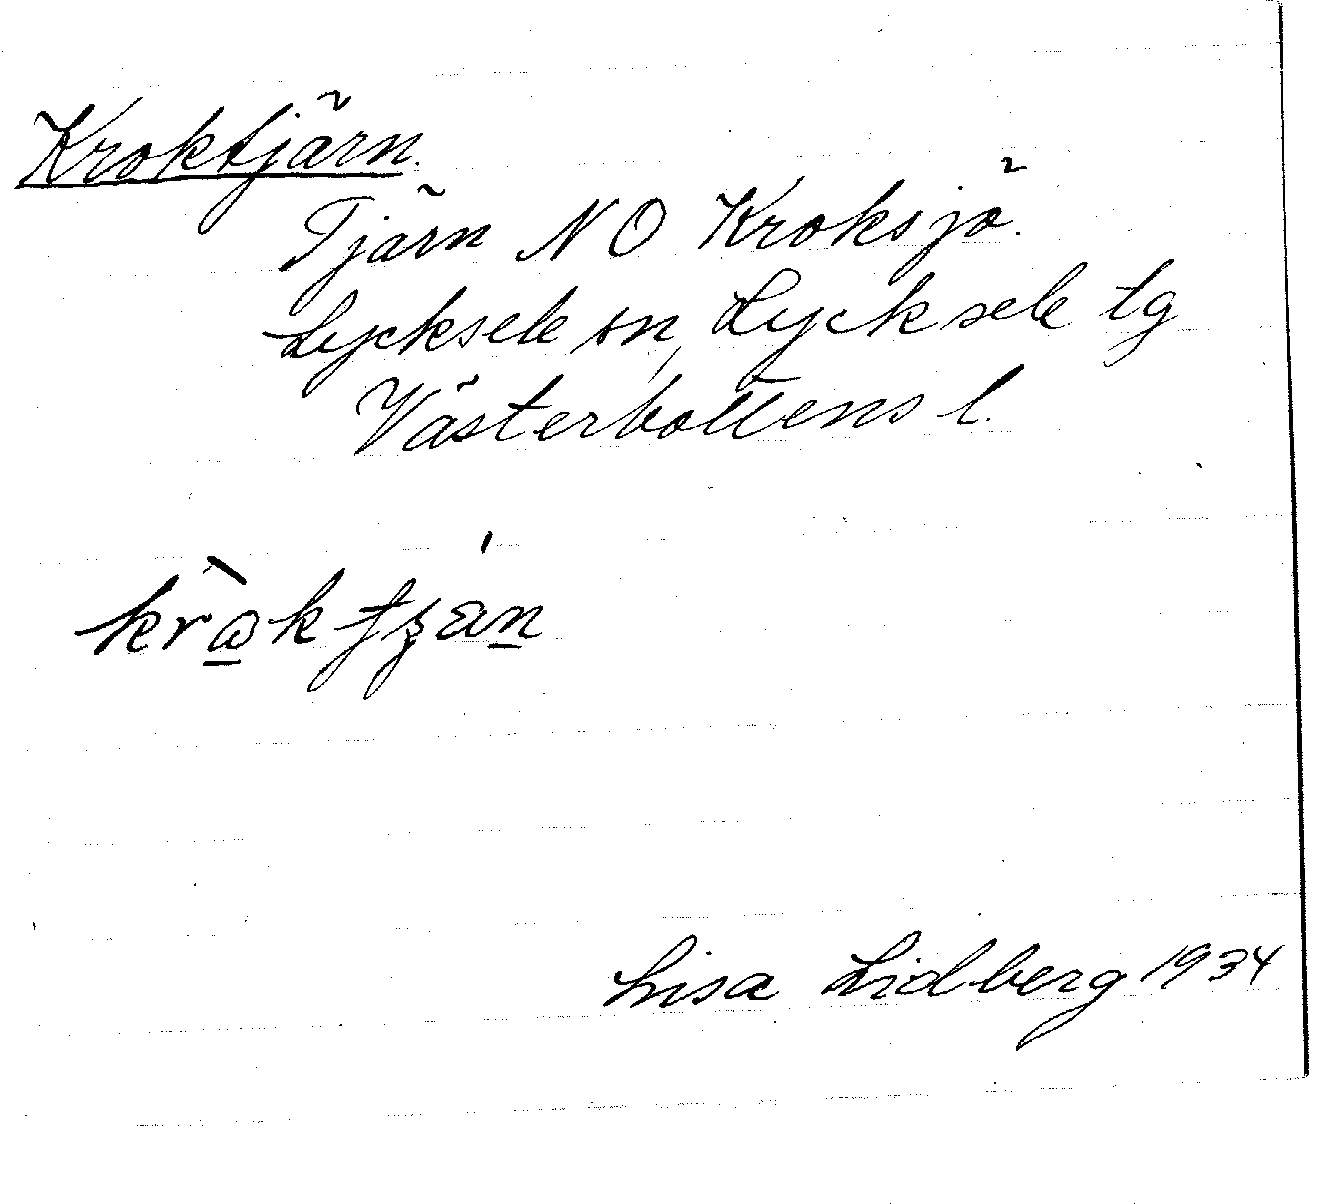 Kroktjärn.
Tjärn NO Kroksjö.
Lycksele sn, Lycksele tg
Västerbottens l.
Lisa Lidberg 1934